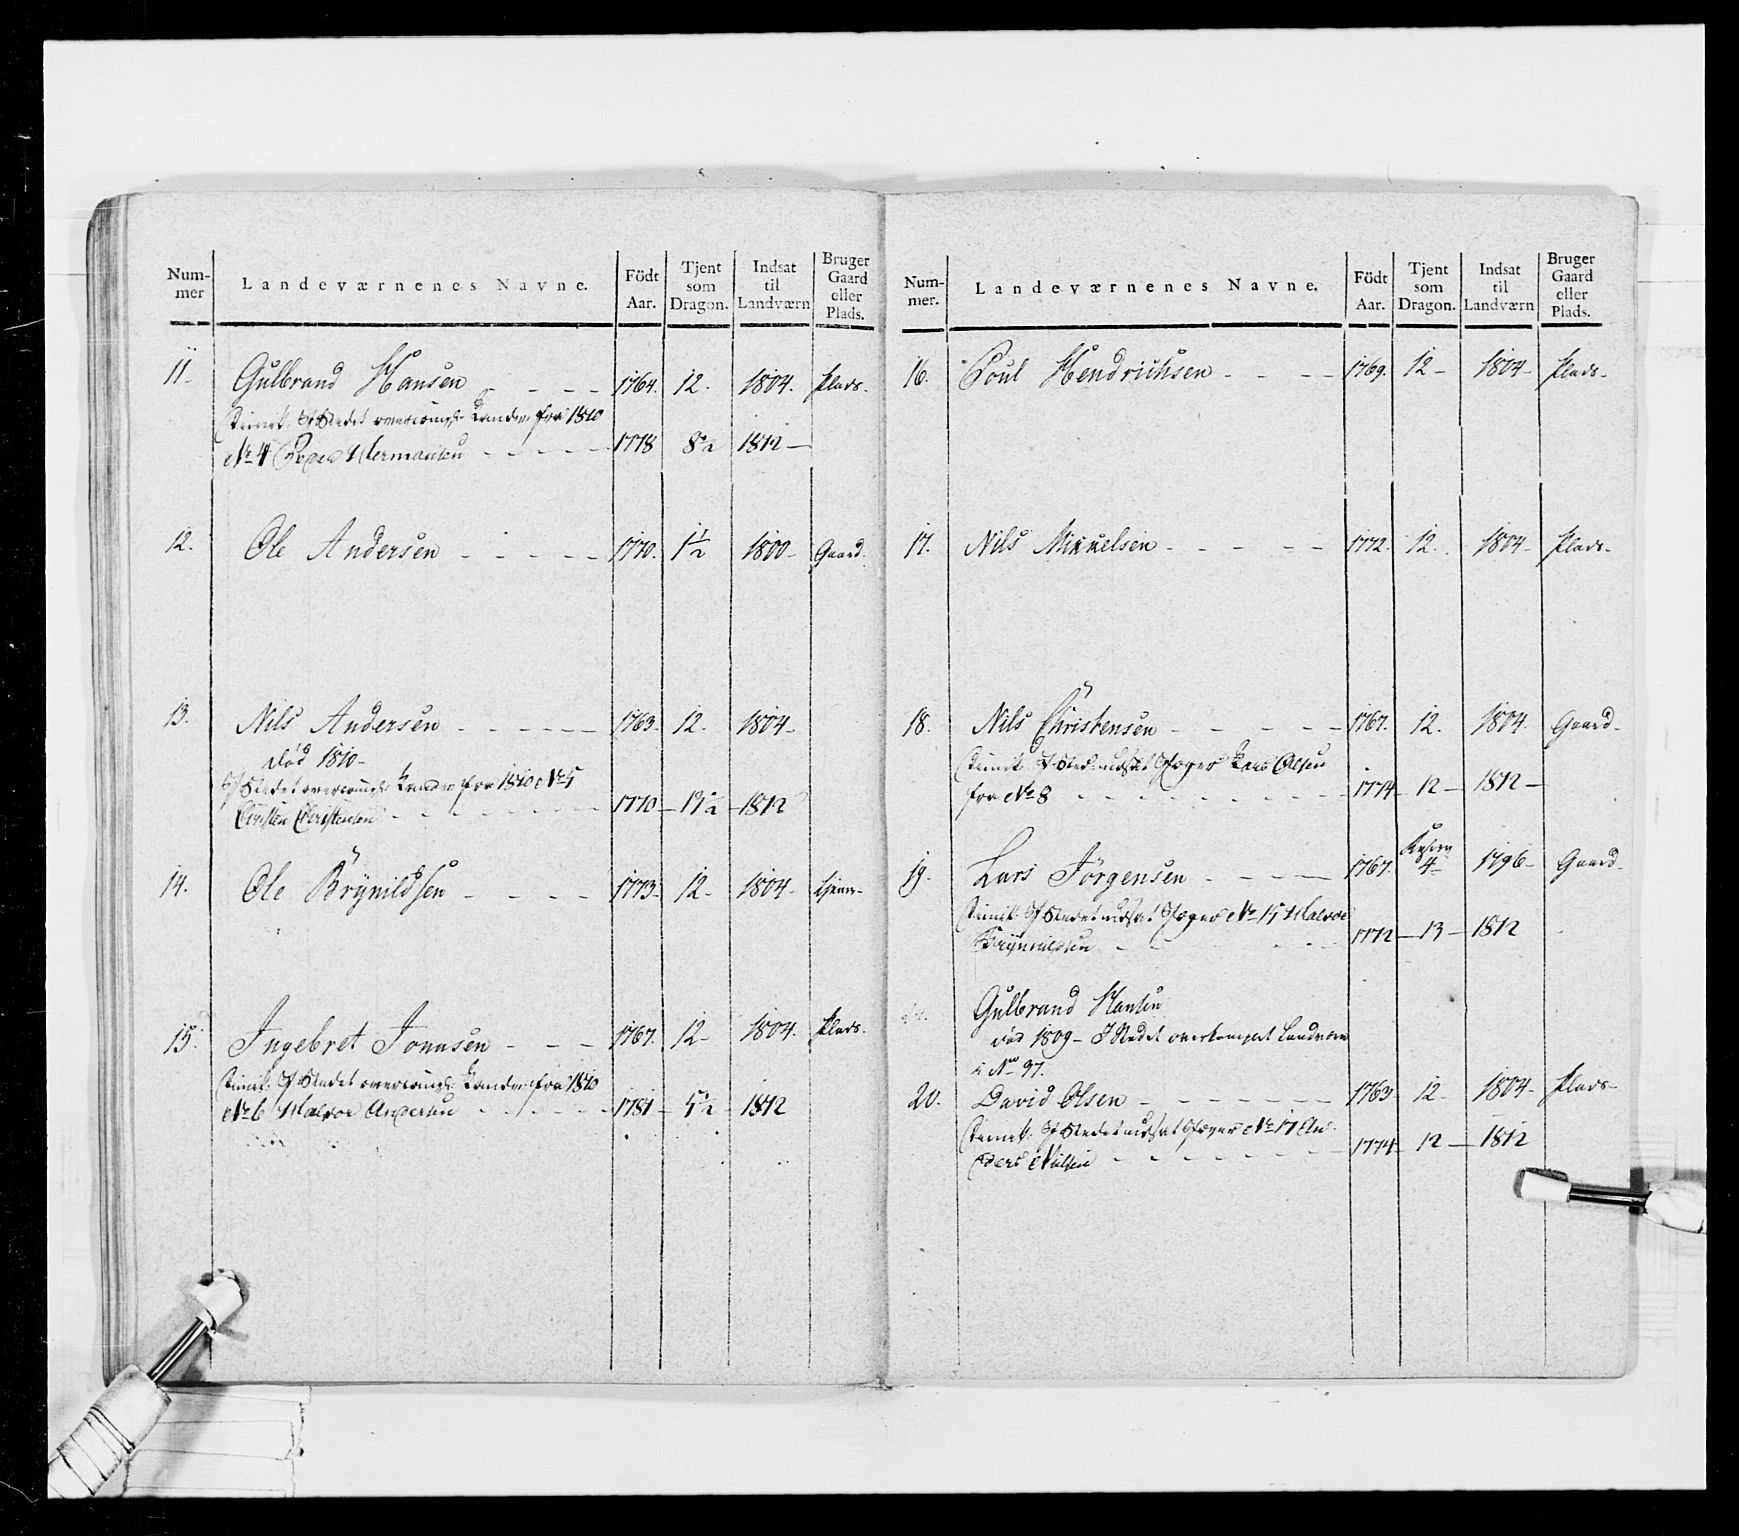 Num-
mer
Landeværnenes Navne.
Födt
Aar.
Tjent
som
Dragon.
Indsat
til
Landværn
Bruger
Gaard
eller
Plads.
11. Gulbrand Hansen 1764. 12. 1804. Plads.
Dimit: I Stedet fra 1810
No 4 Hermansen 1778 8½ 1812
12. Ole Andersen 1770. 1½ 1800 Gaard.
13. Nils Andersen 1763. 12. 1804
død 1810
I Stedet fra 1810 No 5
Christen Christensen 1770 13½ 1812
14. Ole Brynildsen 1773 12 1804
15. Ingebret Jonnsen 1767. 12 1804. Plads.
Dimit: I Stedet fra 1810
No 6 Halvor Andersen 1781 5½ 1812
Num-
mer.
Landeværnenes Navne.
Födt
Aar.
Tjent
som
Dragon.
Indsat
til
Landværn
Bruger
Gaard
eller
Plads.
16. Poul Hendrichsen 1769. 12 1804 Plads
17. Nils Mikkelsen 1772. 12. 1804 Plads
18. Nils Christensen 1767. 12. 1804. Gaard
Dimit: I Sted indsat Lars Olsen
fra No 8 1774 12 1812
19. Lars Jörgensen 1767. 4 1796 Gaard
Dimit: I Stedet indsat No 15 Halvor
Brynildsen 1772 13 1812
Gulbrand Hansen
død 1809 I Stedet overkompet Landværn
No 97.
20. David Olsen 1763 12 1804 Plads
Dimit: I Stedet indsat No 17 An-
ders Nilsen 1774 12 1812